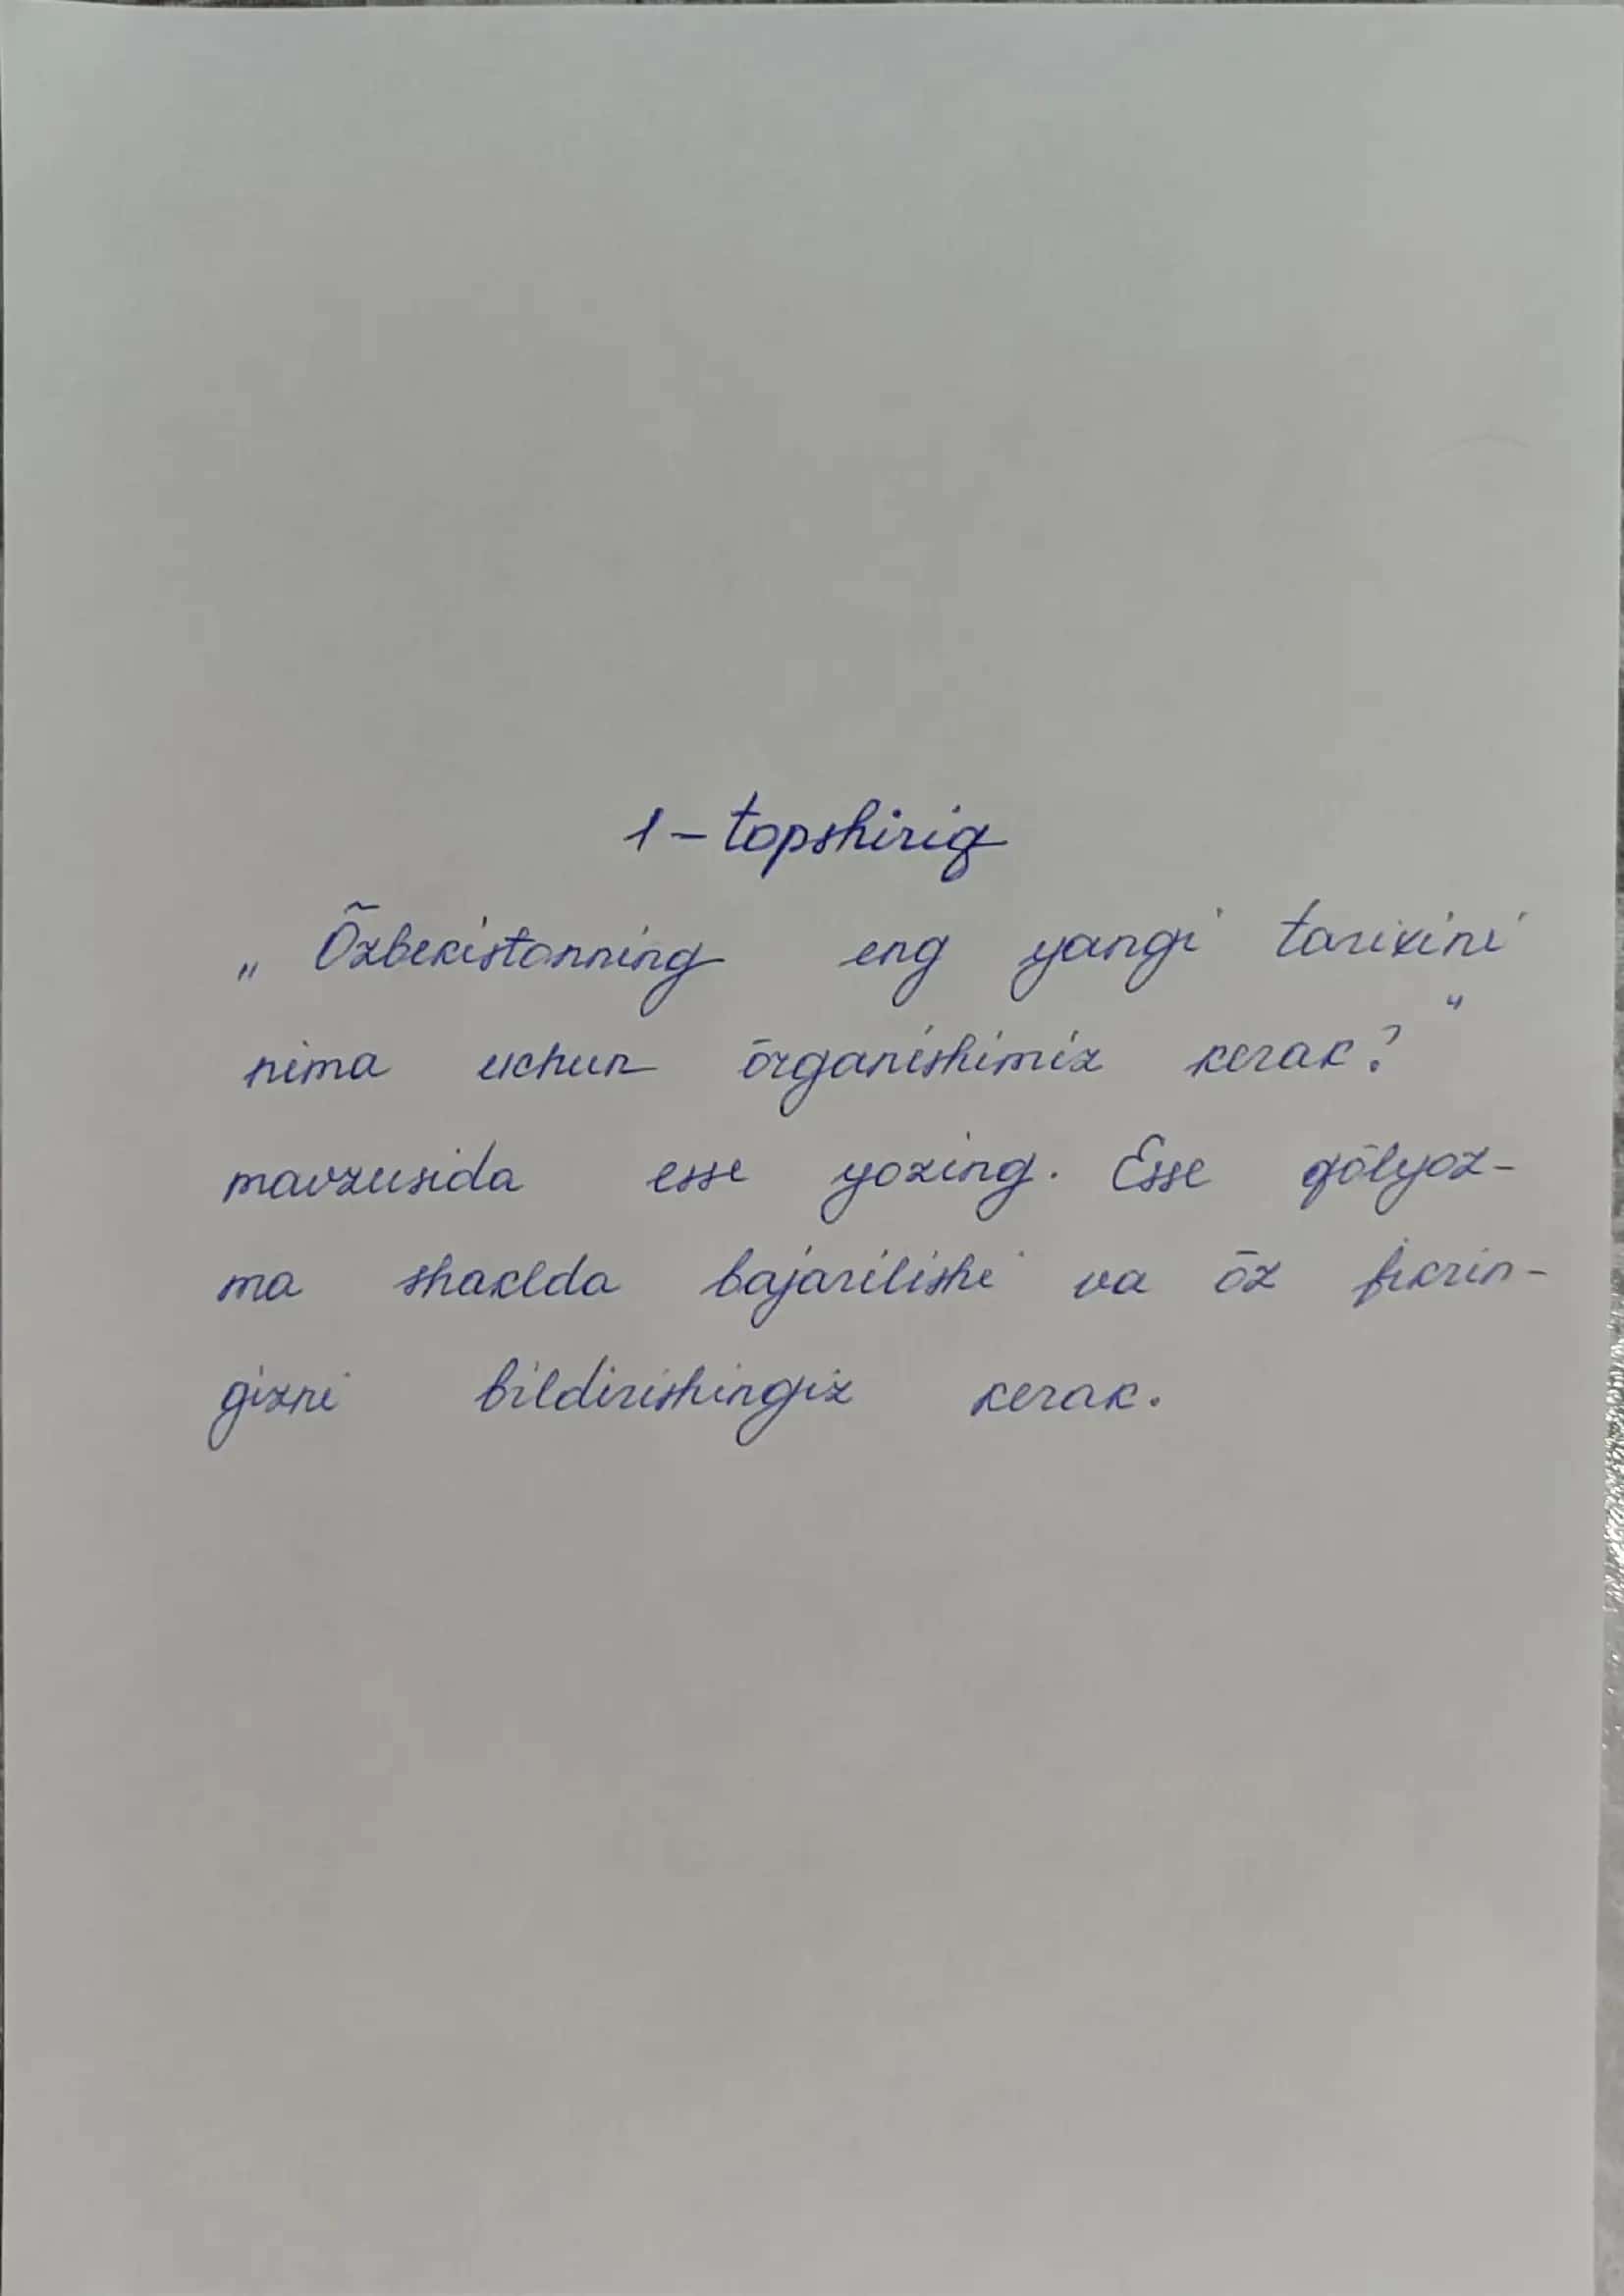 1-topshiriq
„Õzbekistonning eng yangi tarixini
nima uchun ōrganishimiz kerak?“
mavzusida esse yozing. Esse qōlyoz-
ma shaklda bajarilishi va ōz fikrin-
gizni bildirishingiz kerak.